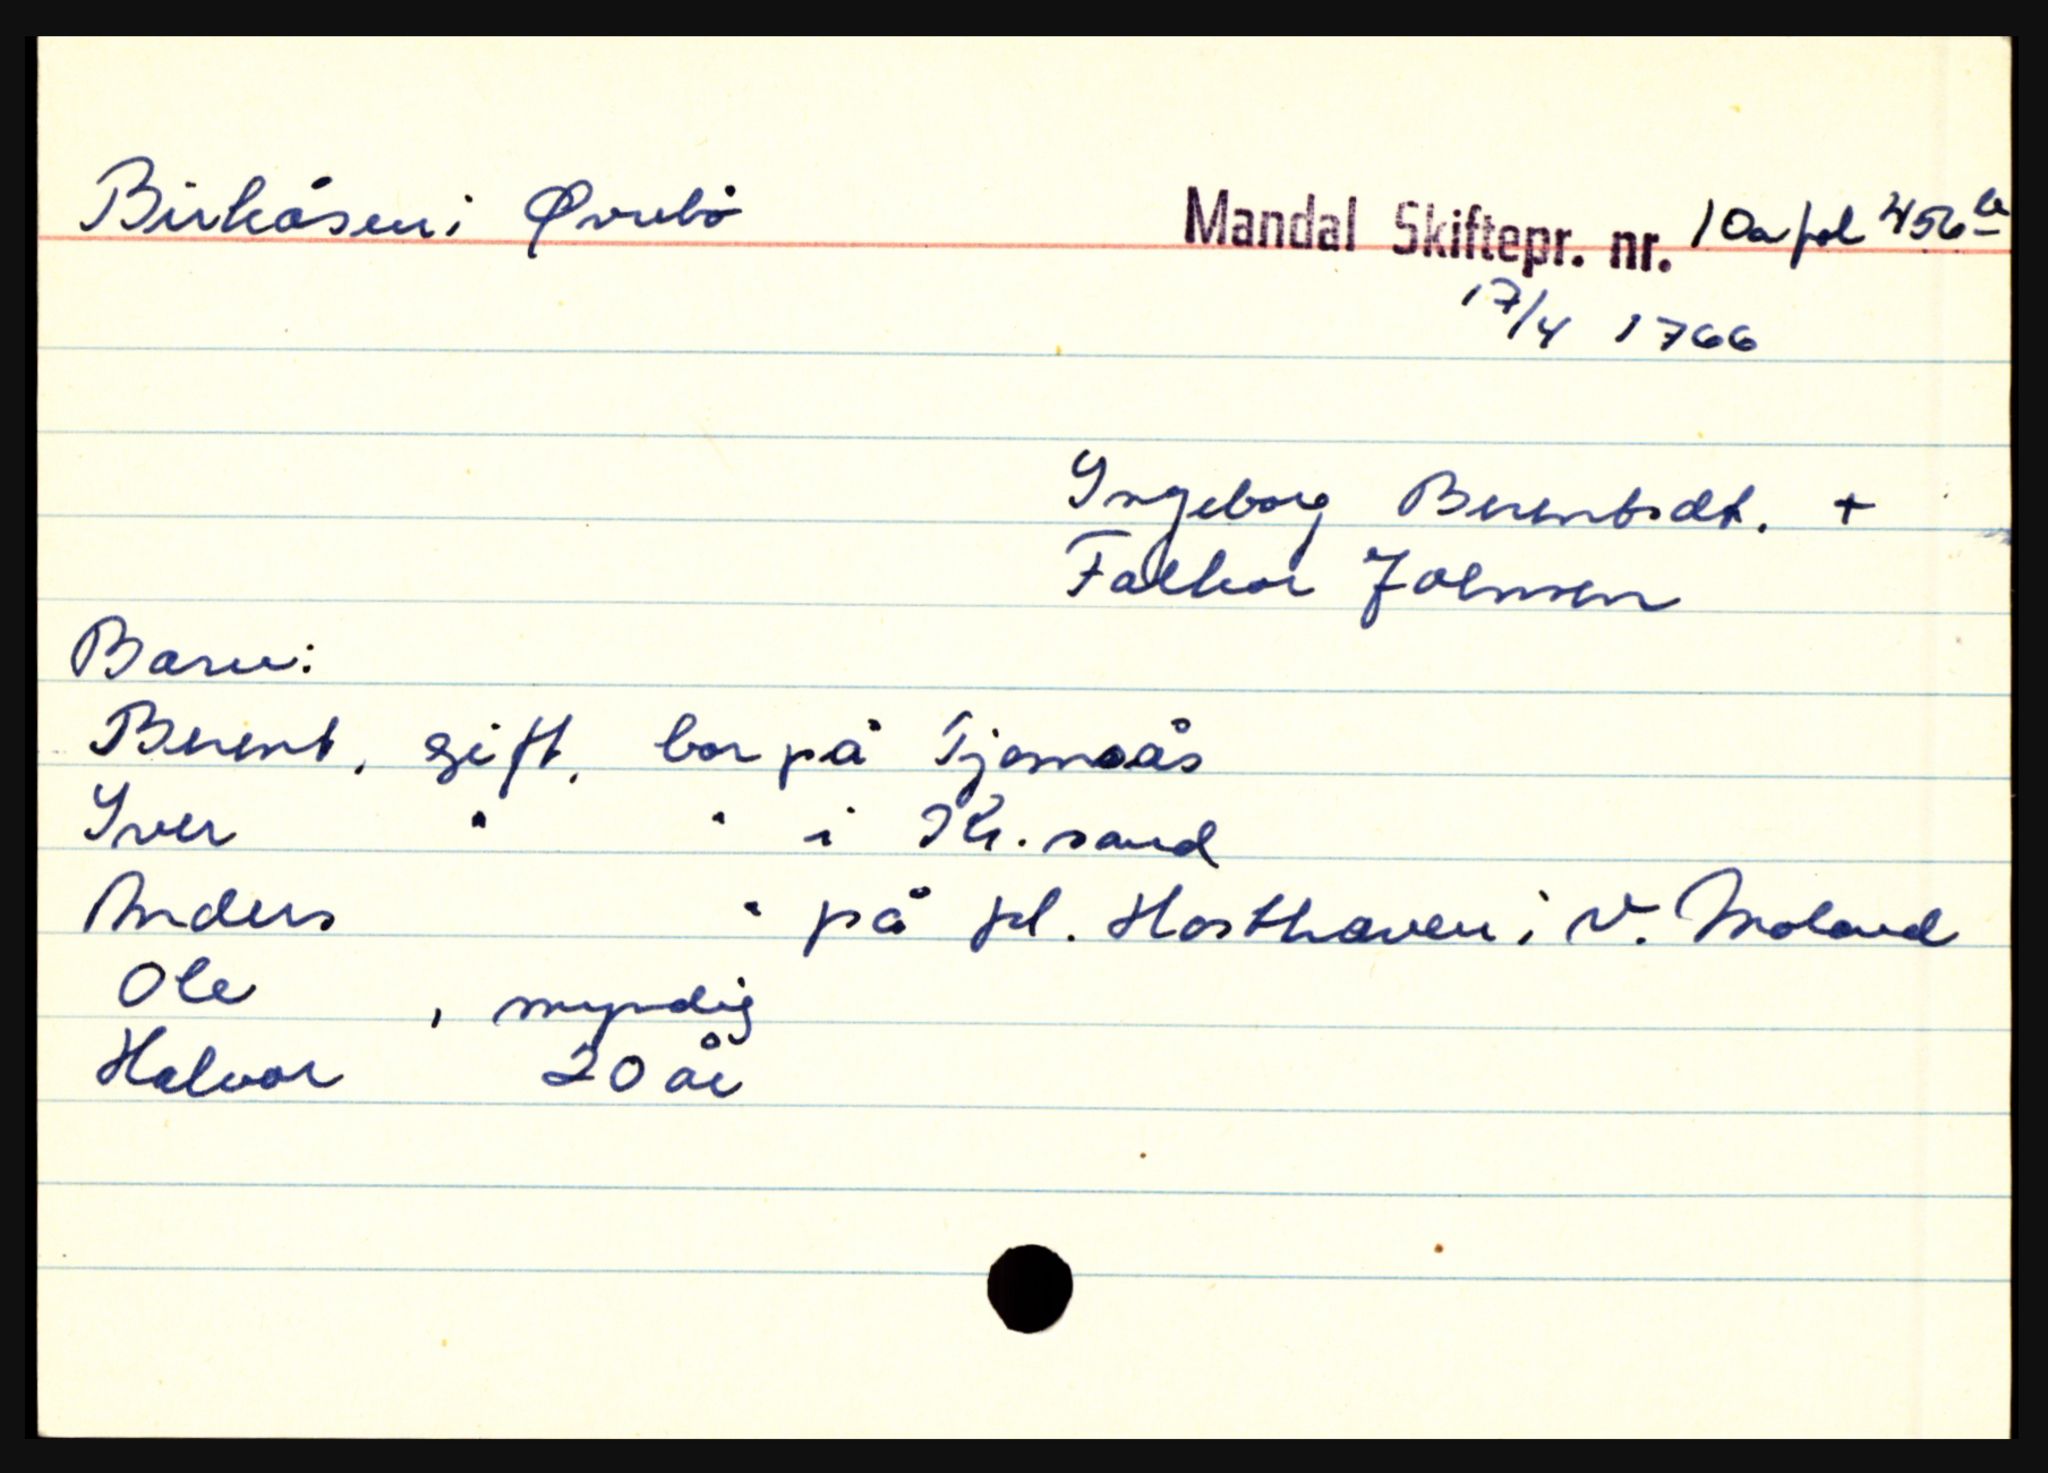 Birkåsen i Øvrebö Mandal Skiftepr. nr. 10a fol 456b
17/4 1766
Ingeborg Berentsdt. +
Falkor Johnsen
Barn:
Berent, gift, bor på Tjomsås
Iver " " i Kr.sand
Anders " på pl. Hosthaven i V. Moland
Ole , myndig
Halvor 20 år